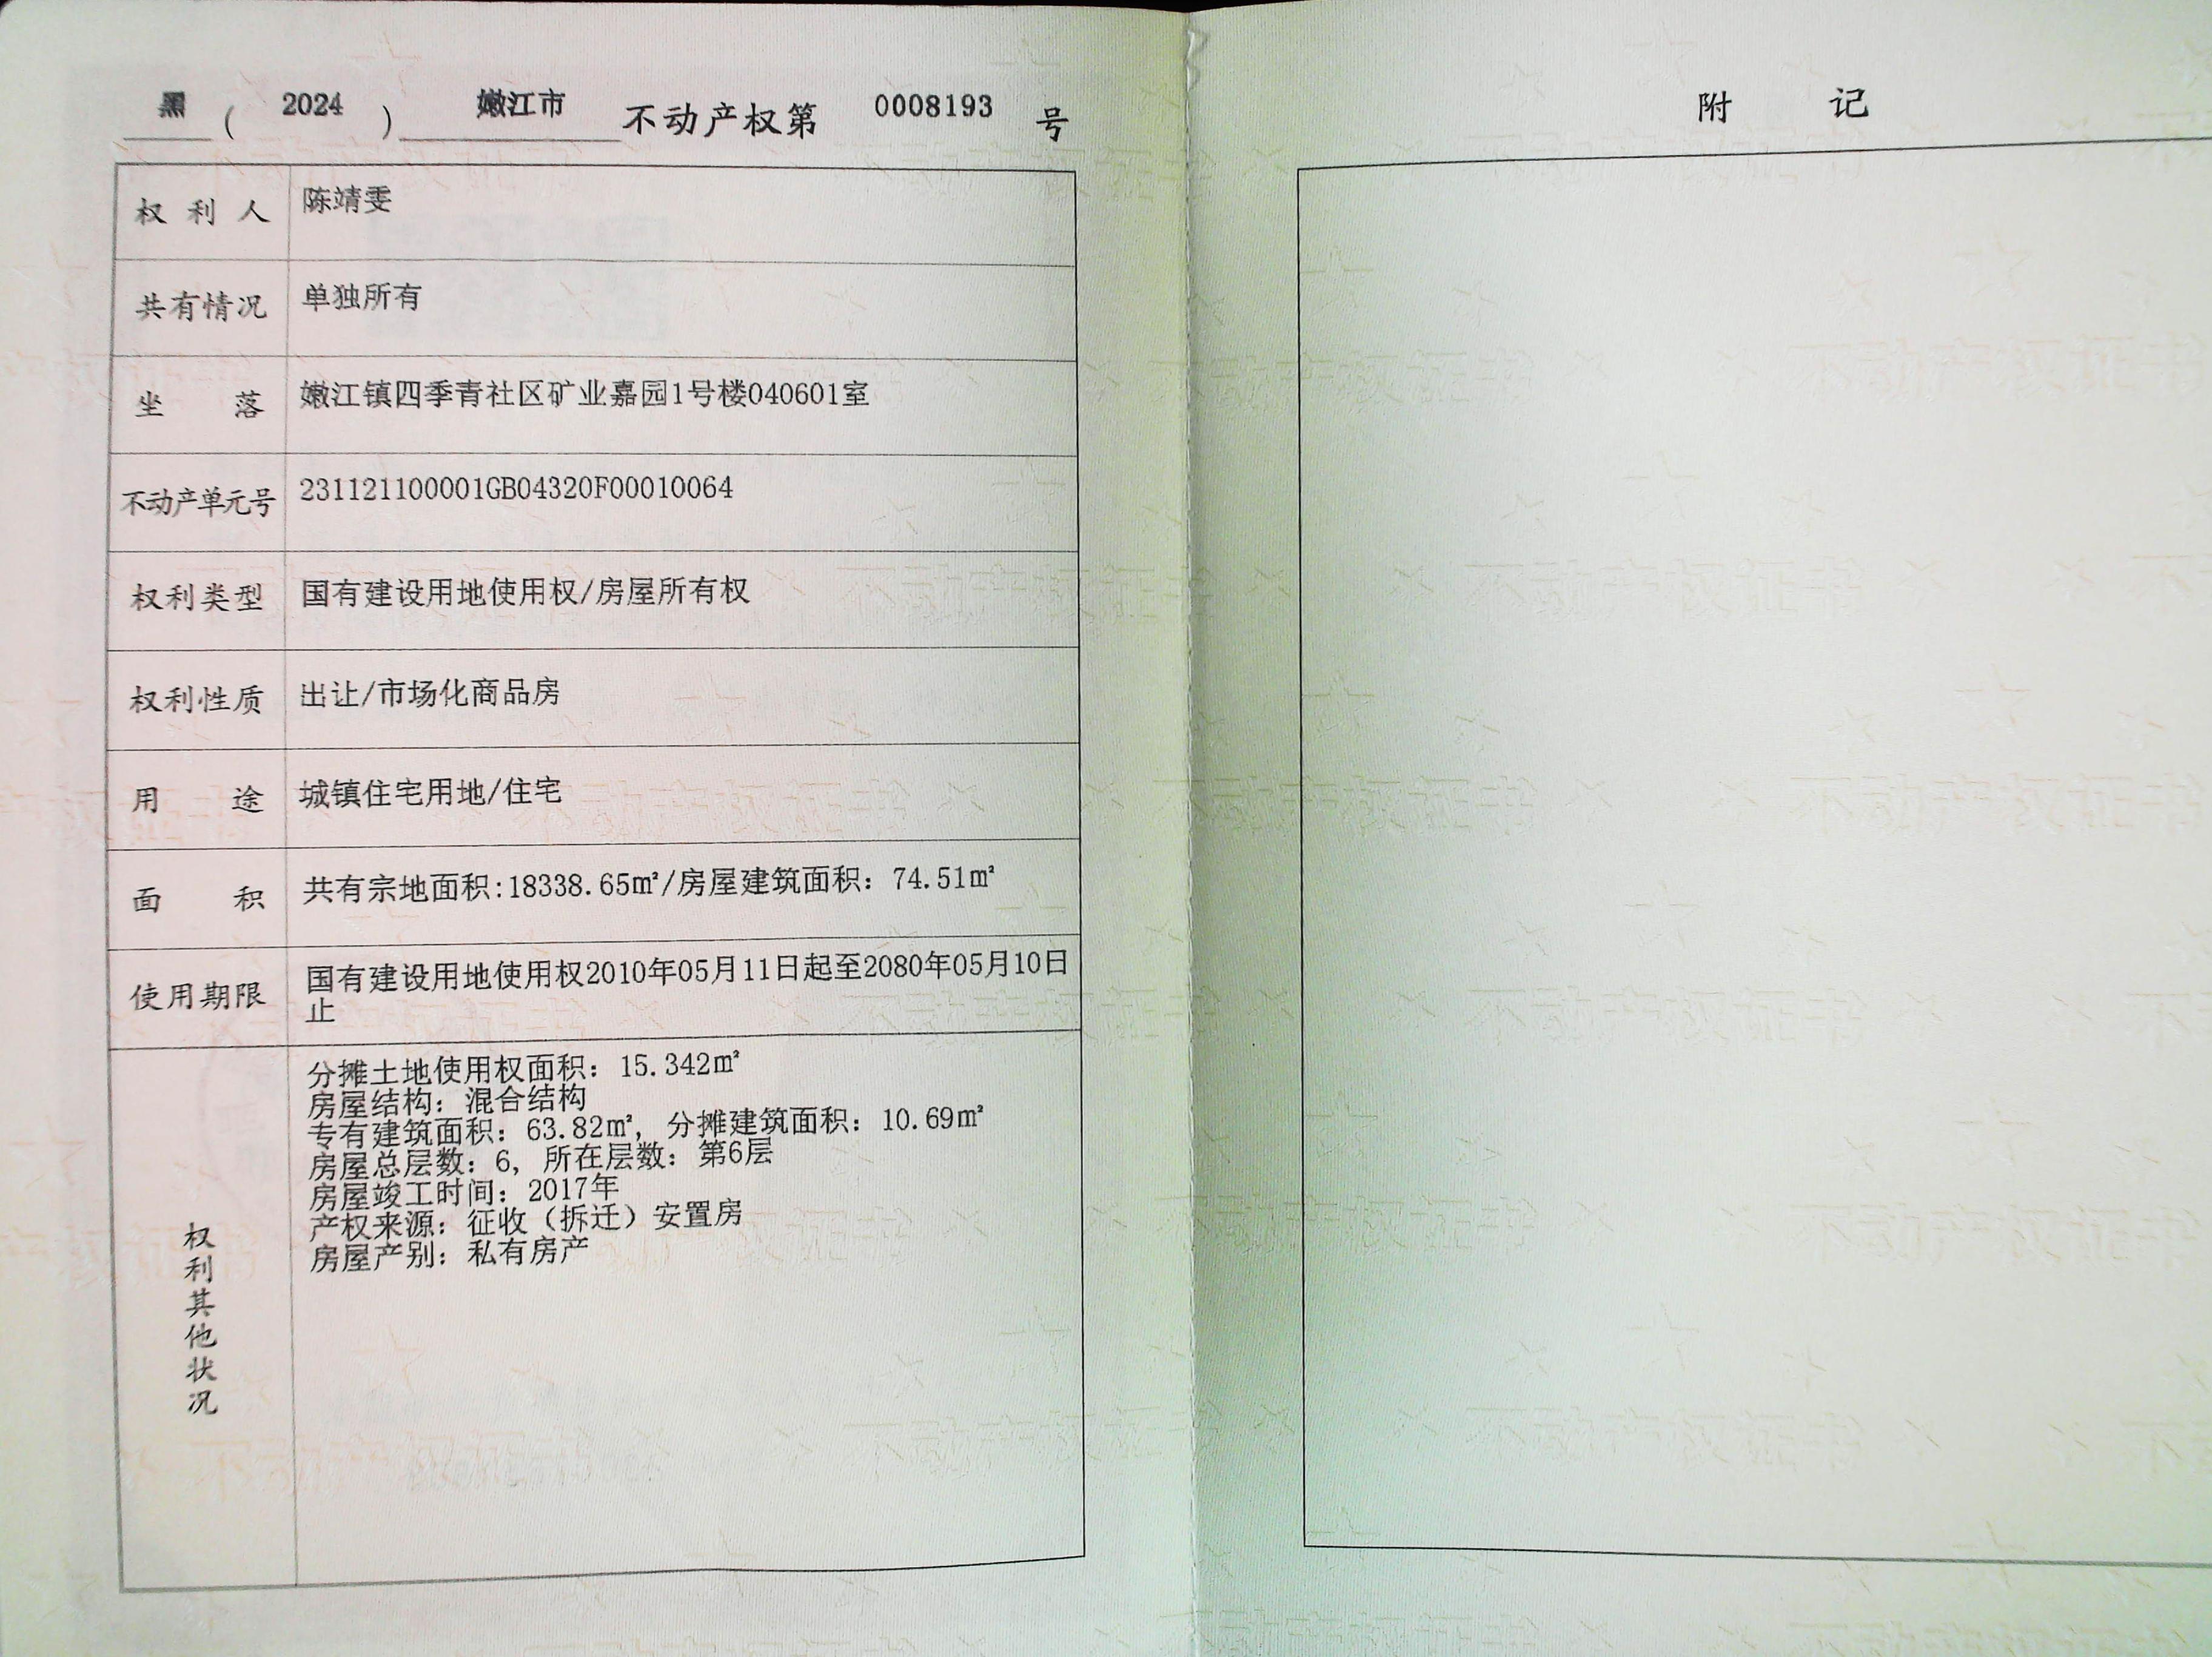 黑 ( 2024 ) 嫩江市 不动产权第 0008193 号
权利人 陈靖雯
共有情况 单独所有
坐落 嫩江镇四季青社区矿业嘉园1号楼040601室
不动产单元号 231121100001GB04320F00010064
权利类型 国有建设用地使用权/房屋所有权
权利性质 出让/市场化商品房
用途 城镇住宅用地/住宅
面积 共有宗地面积:18338.65㎡/房屋建筑面积：74.51㎡
使用期限 国有建设用地使用权2010年05月11日起至2080年05月10日
止
权利其他状况
分摊土地使用权面积：15.342㎡
房屋结构：混合结构
专有建筑面积：63.82㎡，分摊建筑面积：10.69㎡
房屋总层数：6，所在层数：第6层
房屋竣工时间：2017年
产权来源：征收（拆迁）安置房
房屋产别：私有房产
附记